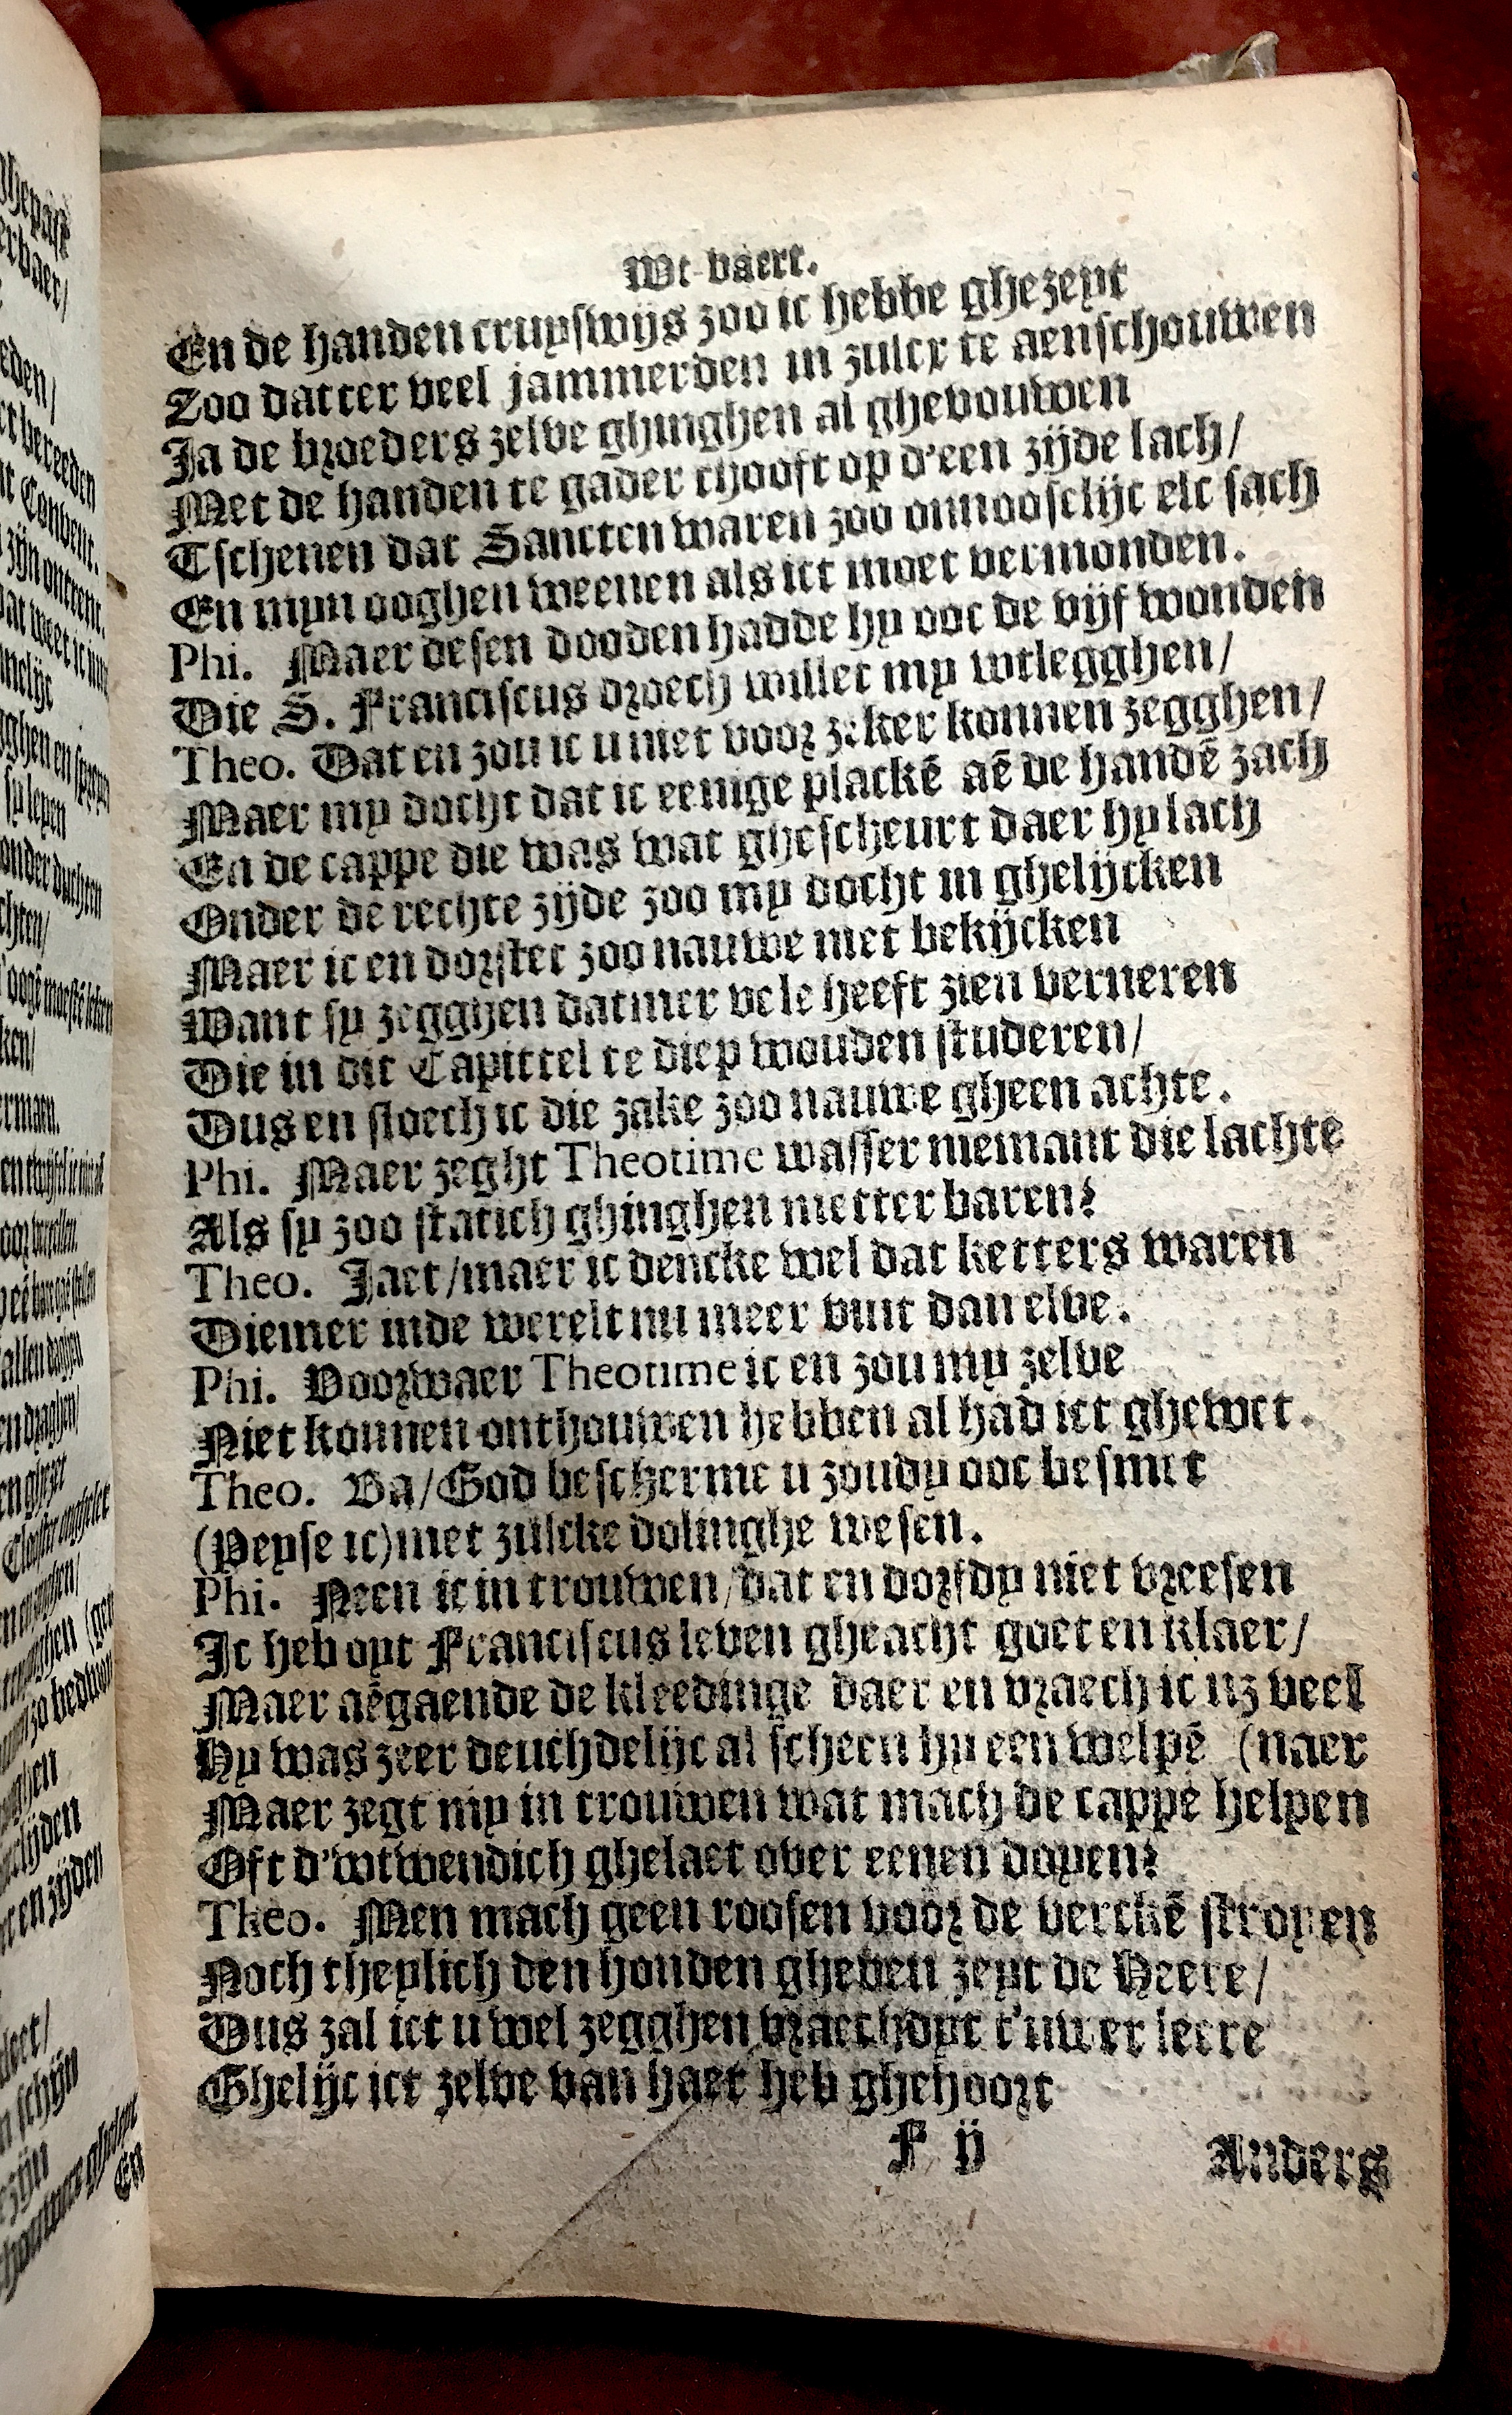 Wt-vaert.
En de handen cruyswijs zoo ic hebbe ghezeyt
Zoo datter veel jammerden in zulcx te aenschouwen
Ja de broeders zelve ghinghen al ghevouwen
Met de handen te gader thooft op d'een zijde lach/
Tschenen dat Sancten waren zoo onnooselijc elc sach
En myn ooghen weenen als ict moet vermonden.
Phi. Maer desen dooden hadde hy ooc de vijf wonden
Die S. Franciscus droech willet my wtlegghen/
Theo. Dat en zou ic u niet voor zeker konnen zegghen/
Maer my docht dat ic eenige plackē aē de handē zach
En de cappe die was wat ghescheurt daer hy lach
Onder de rechte zijde zoo my docht in ghelijcken
Maer ic en dorstet zoo nauwe niet bekijcken
Want sy zegghen datmer vele heeft zien verneren
Die in dit Capittel te diep wouden studeren/
Dus en sloech ic die zake zoo nauwe gheen achte.
Phi. Maer zeght Theotime wasser niemant die lachte
Als sy zoo statich ghinghen metter baren?
Theo. Jaet/maer ic dencke wel dat ketters waren
Diemer inde werelt nu meer vint dan elve.
Phi. Voorwaer Theotime ic en zou my zelve
Niet konnen onthouwen hebben al had ict ghewet.
Theo. Ba/God bescherme u zoudy ooc besmet
(Peyse ic)met zulcke dolinghe wesen.
Phi. Neen ic in trouwen/dat en dorfdy niet vreesen
Ic heb oyt Franciscus leven gheacht goet en klaer/
Maer aēgaende de kleedinge daer en vraech ic nz veel
Hy was zeer deuchdelijc al scheen hy een welpē (naer
Maer zegt my in trouwen wat mach de cappe helpen
Oft d'wtwendich ghelaet over eenen doyen?
Theo. Men mach geen roosen voor de verckē stroyen
Noch theylich den honden gheven zeyt de Heere/
Dus zal ict u wel zegghen vraechdyt t'uwer leere
Ghelijc ict zelve van haer heb ghehoort
F ij
Anders